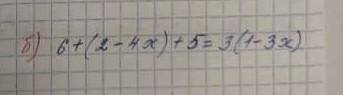 б) 6+(2-4x)+5=3(1-3x)